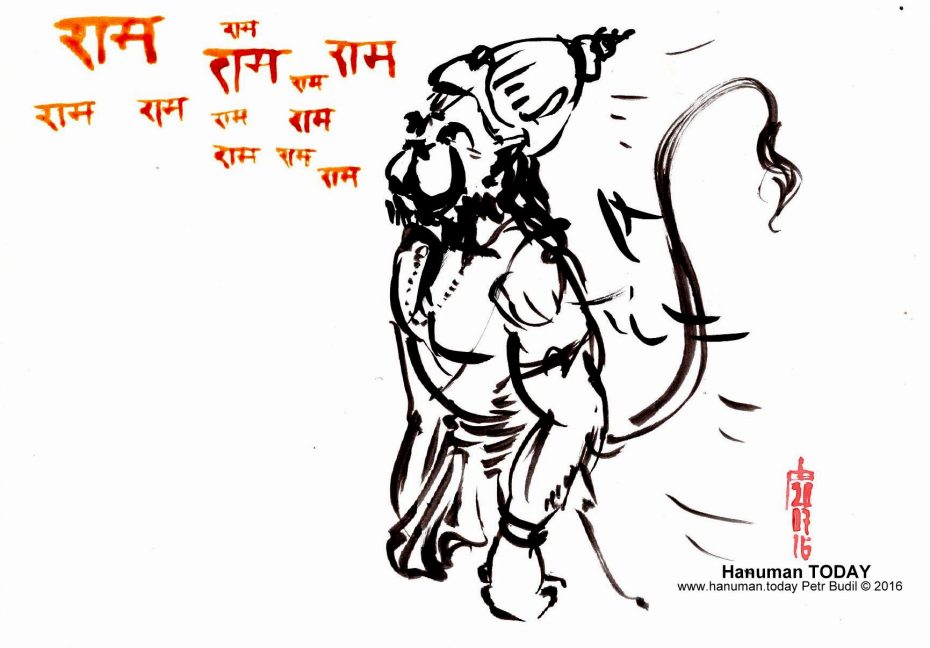 राम
राम
राम
राम
राम
राम
राम
राम
राम
राम
राम
राम
21
07
16
Hanuman TODAY
www.hanuman.today Petr Budil © 2016